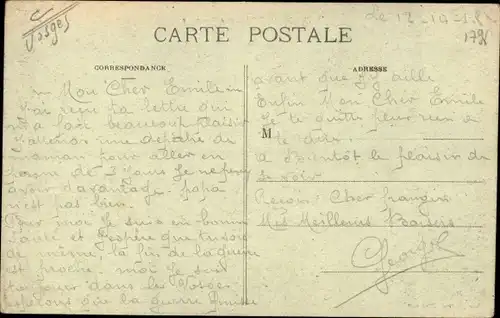 Vosges
Le 13-10-18
CARTE POSTALE
CORRESPONDANCE
ADRESSE
M
Mon Cher Emile
J'ai reçu ta lettre qui
m'a fait beaucoup plaisir
J'attends une de
maman pour aller en
perm de Je ne peux
avoir davantage. papa
n'est pas bien.
Pour moi Je suis en bonne
santé et J'espère que tu sois
de même, la fin de la guerre
est proche, moi Je suis
toujours dans les Vosges
espérons que la guerre finisse
avant que J'y aille
Enfin Mon Cher Emile
Je te quitte pour rien à
te dire.
a Bientôt le plaisir de
se voir
Reçois Cher frangin
Mes Meilleurs Baisers
Georges